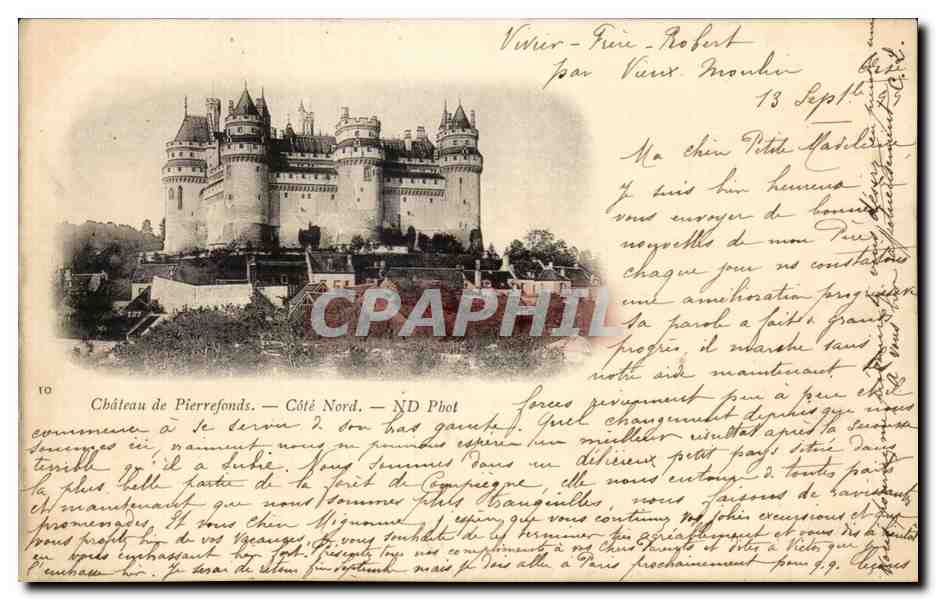 Vivier-Frère-Robert
par Vieux-Moulin Oise
13 Septbre
Ma chère Petite Madeleine,
Je suis bien heureux
vous envoyer de bonnes
nouvelles de mon Père
chaque jour ns constatons
une amélioration progressive
sa parole a fait de grands
progrès, il marche sans
notre aide maintenant.
CPARAPHIL
127
10
Château de Pierrefonds. — Côté Nord. — ND Phot
forces reviennent peu à peu et il
commence à se servir de son bras gauche. Quel changement depuis que nous
sommes ici, vraiment nous ne pouvions espérer un meilleur résultat après la secousse
terrible qu'il a subie. Nous sommes dans un délicieux petit pays situé dans
la plus belle partie de la forêt de Compiègne, elle nous entoure de toutes parts
et maintenant que nous sommes plus tranquilles, nous faisons de ravissantes
promenades. Et vous chère Mignonne, j'espère que vous continuez vos jolies excursions et que
vous profitez bien de vos vacances, je vous souhaite de les terminer très agréablement et vous dis à bientôt
en vous embrassant bien fort. Présentez tous nos compliments à vos chers Parents et dites à Victor que je
l'embrasse bien. Je serai de retour fin septembre mais je dois aller à Paris prochainement pour q.q. leçons